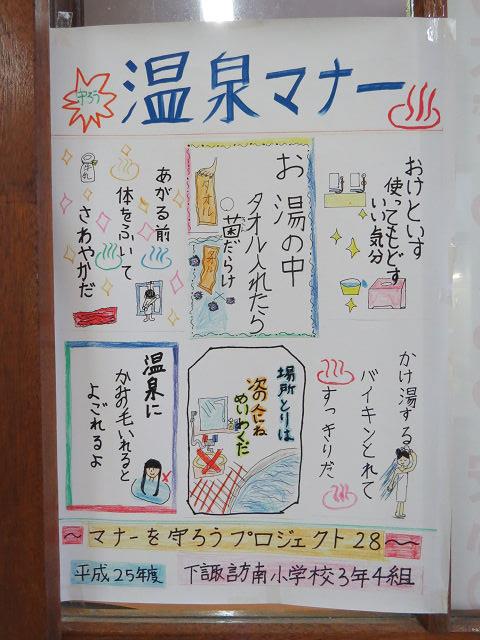 守ろう
温泉マナー
おけといす
使ってもどす
いい気分
お湯の中
タオル入れたら
菌だらけ
タオル
あがる前
体をふいて
さわやかだ
牛乳
かけ湯する
バイキンとれて
すっきりだ
場所とりは
次の人にね
めいわくだ
温泉に
かみの毛いれると
よごれるよ
～マナーを守ろうプロジェクト28～
平成25年度 下諏訪南小学校3年4組